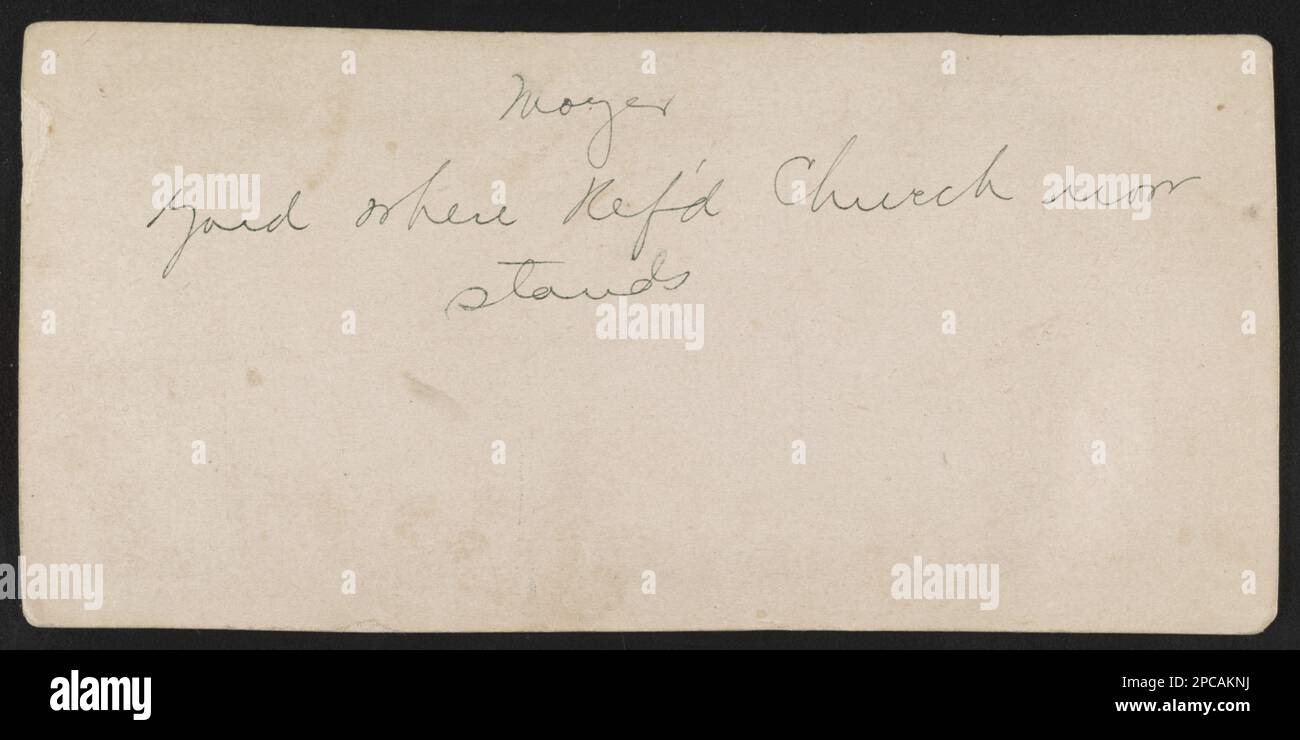 Moyer
yard where Ref'd Church now
stands
alamy
alamy
alamy
a
a
a
a
a
a
a
alamy
Image ID: 2PCAKNJ
www.alamy.com